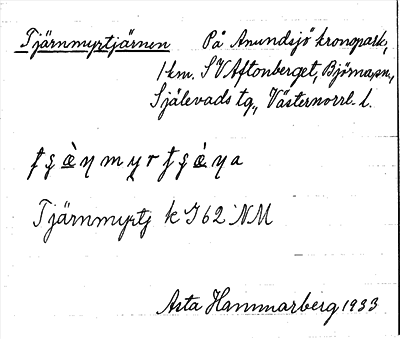 Tjärnmyrtjärnen På Anundsjö kronopark,
1 km. SV Aftonberget, Björna sn.,
Själevads tg., Västernorrl. l.
Tjärnmyrtj k J62 NM
Asta Hammarberg 1933